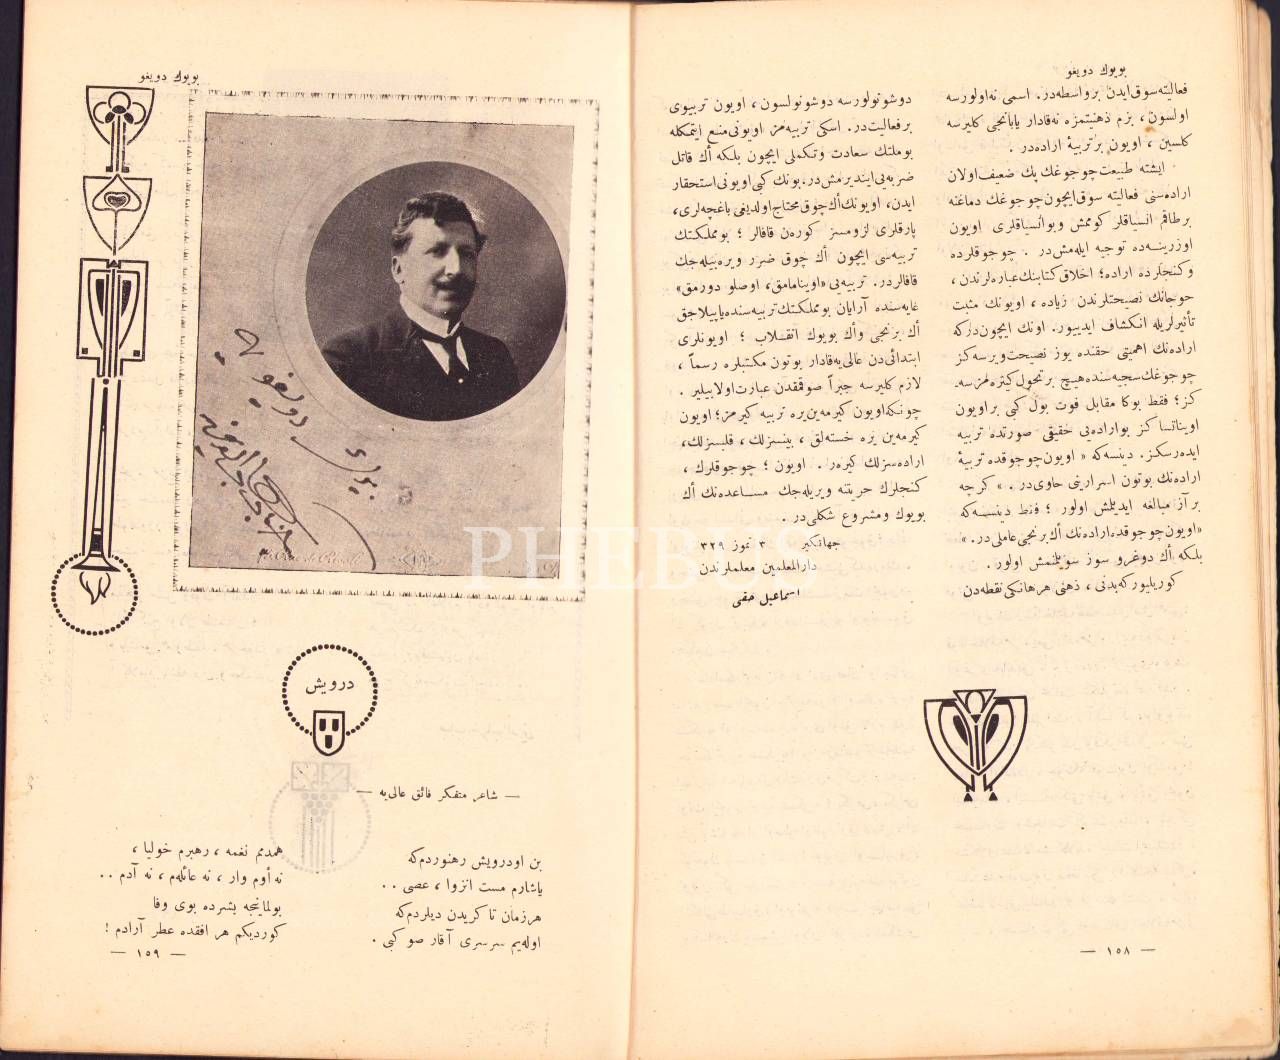 بويوك دويغو
فعاليته سوق ايدن بر واسطه در. اسمى نه اولورسه
اولسون ، بزم ذهنيتمزه نه قادار يابانجى كليرسه
كلسين ، اويون بر تربيۀ اراده در .
ايشته طبيعت چوجوغك پك ضعيف اولان
اراده سنى فعاليته سوق ايچون چوجوغك دماغنه
بر طاقم انسياقلر كوممش و بو انسياقلرى اويون
اوزرينه ده توجيه ايله مش در . چوجوقلرده
و كنجلرده اراده ؛ اخلاق كتابنك عباره لرندن ،
خوجانك نصيحتلرندن زياده ، اويونك مثبت
تأثيرلريله انكشاف ايدييور. اونك ايچون در كه
اراده نك اهميتى حقنده يوز نصيحت ويرسه كز
چوجوغك سجيه سنده هيچ بر تحول كيتره مزسه.
كز ؛ فقط بوكا مقابل فوت بول كبى بر اويون
اويناتسا كز بو اراده يى حقيقى صورتده تربيه
ايده رسكز. دينسه كه « اويون چوجوقده تربيۀ
اراده نك بوتون اسرارينى حاوى در . » كرچه
بر آز مبالغه ايديلمش اولور ؛ فقط دينسه كه
« اويون چوجوقده اراده نك أك برنجى عاملى در. »
بلكه أك دوغرو سوز سويلنمش اولور .
كوريليور كه بدنى ، ذهنى هر هانكى نقطه دن
دوشونولورسه دوشونولسون ، اويون تربيوى
بر فعاليت در. اسكى تربيه مز اويونى منع ايتمكله
بو ملتك سعادت و تكملى ايچون بلكه أك قاتل
ضربه يى اينديرمش در. بونك كبى اويونى استحقار
ايدن، اويونك أك چوق محتاج اولديغى باغچه لرى،
پارقلرى لزومسز كوره ن قافالر ؛ بو مملكتك
تربيه سى ايچون أك چوق ضرر ويره بيله جك
قافالردر. تربيه يى « اوينامامق، اوصلو دورمق »
غايه سنده آرايان بو مملكتك تربيه سنده ياپيلاجق
أك برنجى و أك بويوك انقلاب ؛ اويونلرى
ابتدائى دن عالى يه قادار بوتون مكتبلره رسماً ،
لازم كليرسه جبراً صوقمقدن عبارت اولا بيلير .
چونكه اويون كيرمه ين يره تربيه كيرمز ؛ اويون
كيرمه ين يره خسته لق ، بينسزلك ، قلبسزلك،
اراده سزلك كيره ر . اويون ؛ چوجوقلرك ،
كنجلرك حريتنه ويريله جك مساعده نك أك
بويوك و مشروع شكلى در .
جهانكير ٣ تموز ٣٢٩
دار المعلمين معلملرندن
اسماعيل حقى
— ١٥٨ —
بويوك دويغو
بويوك دويغو
درويش
— شاعر متفكر فائق عالى يه —
بن او درويش رهنوردم كه
ياشارم مست انزوا ، عصى . .
هر زمان تا كريدن ديلردم كه
اوله يم سرسرى آقار صو كبى .
همدمم نغمه ، رهبرم خوليا ،
نه أوم وار ، نه عائله م ، نه آدم . .
بولماينجه بشرده بوى وفا
كورديكم هر افقده عطر آرادم !
— ١٥٩ —
PHEBUS